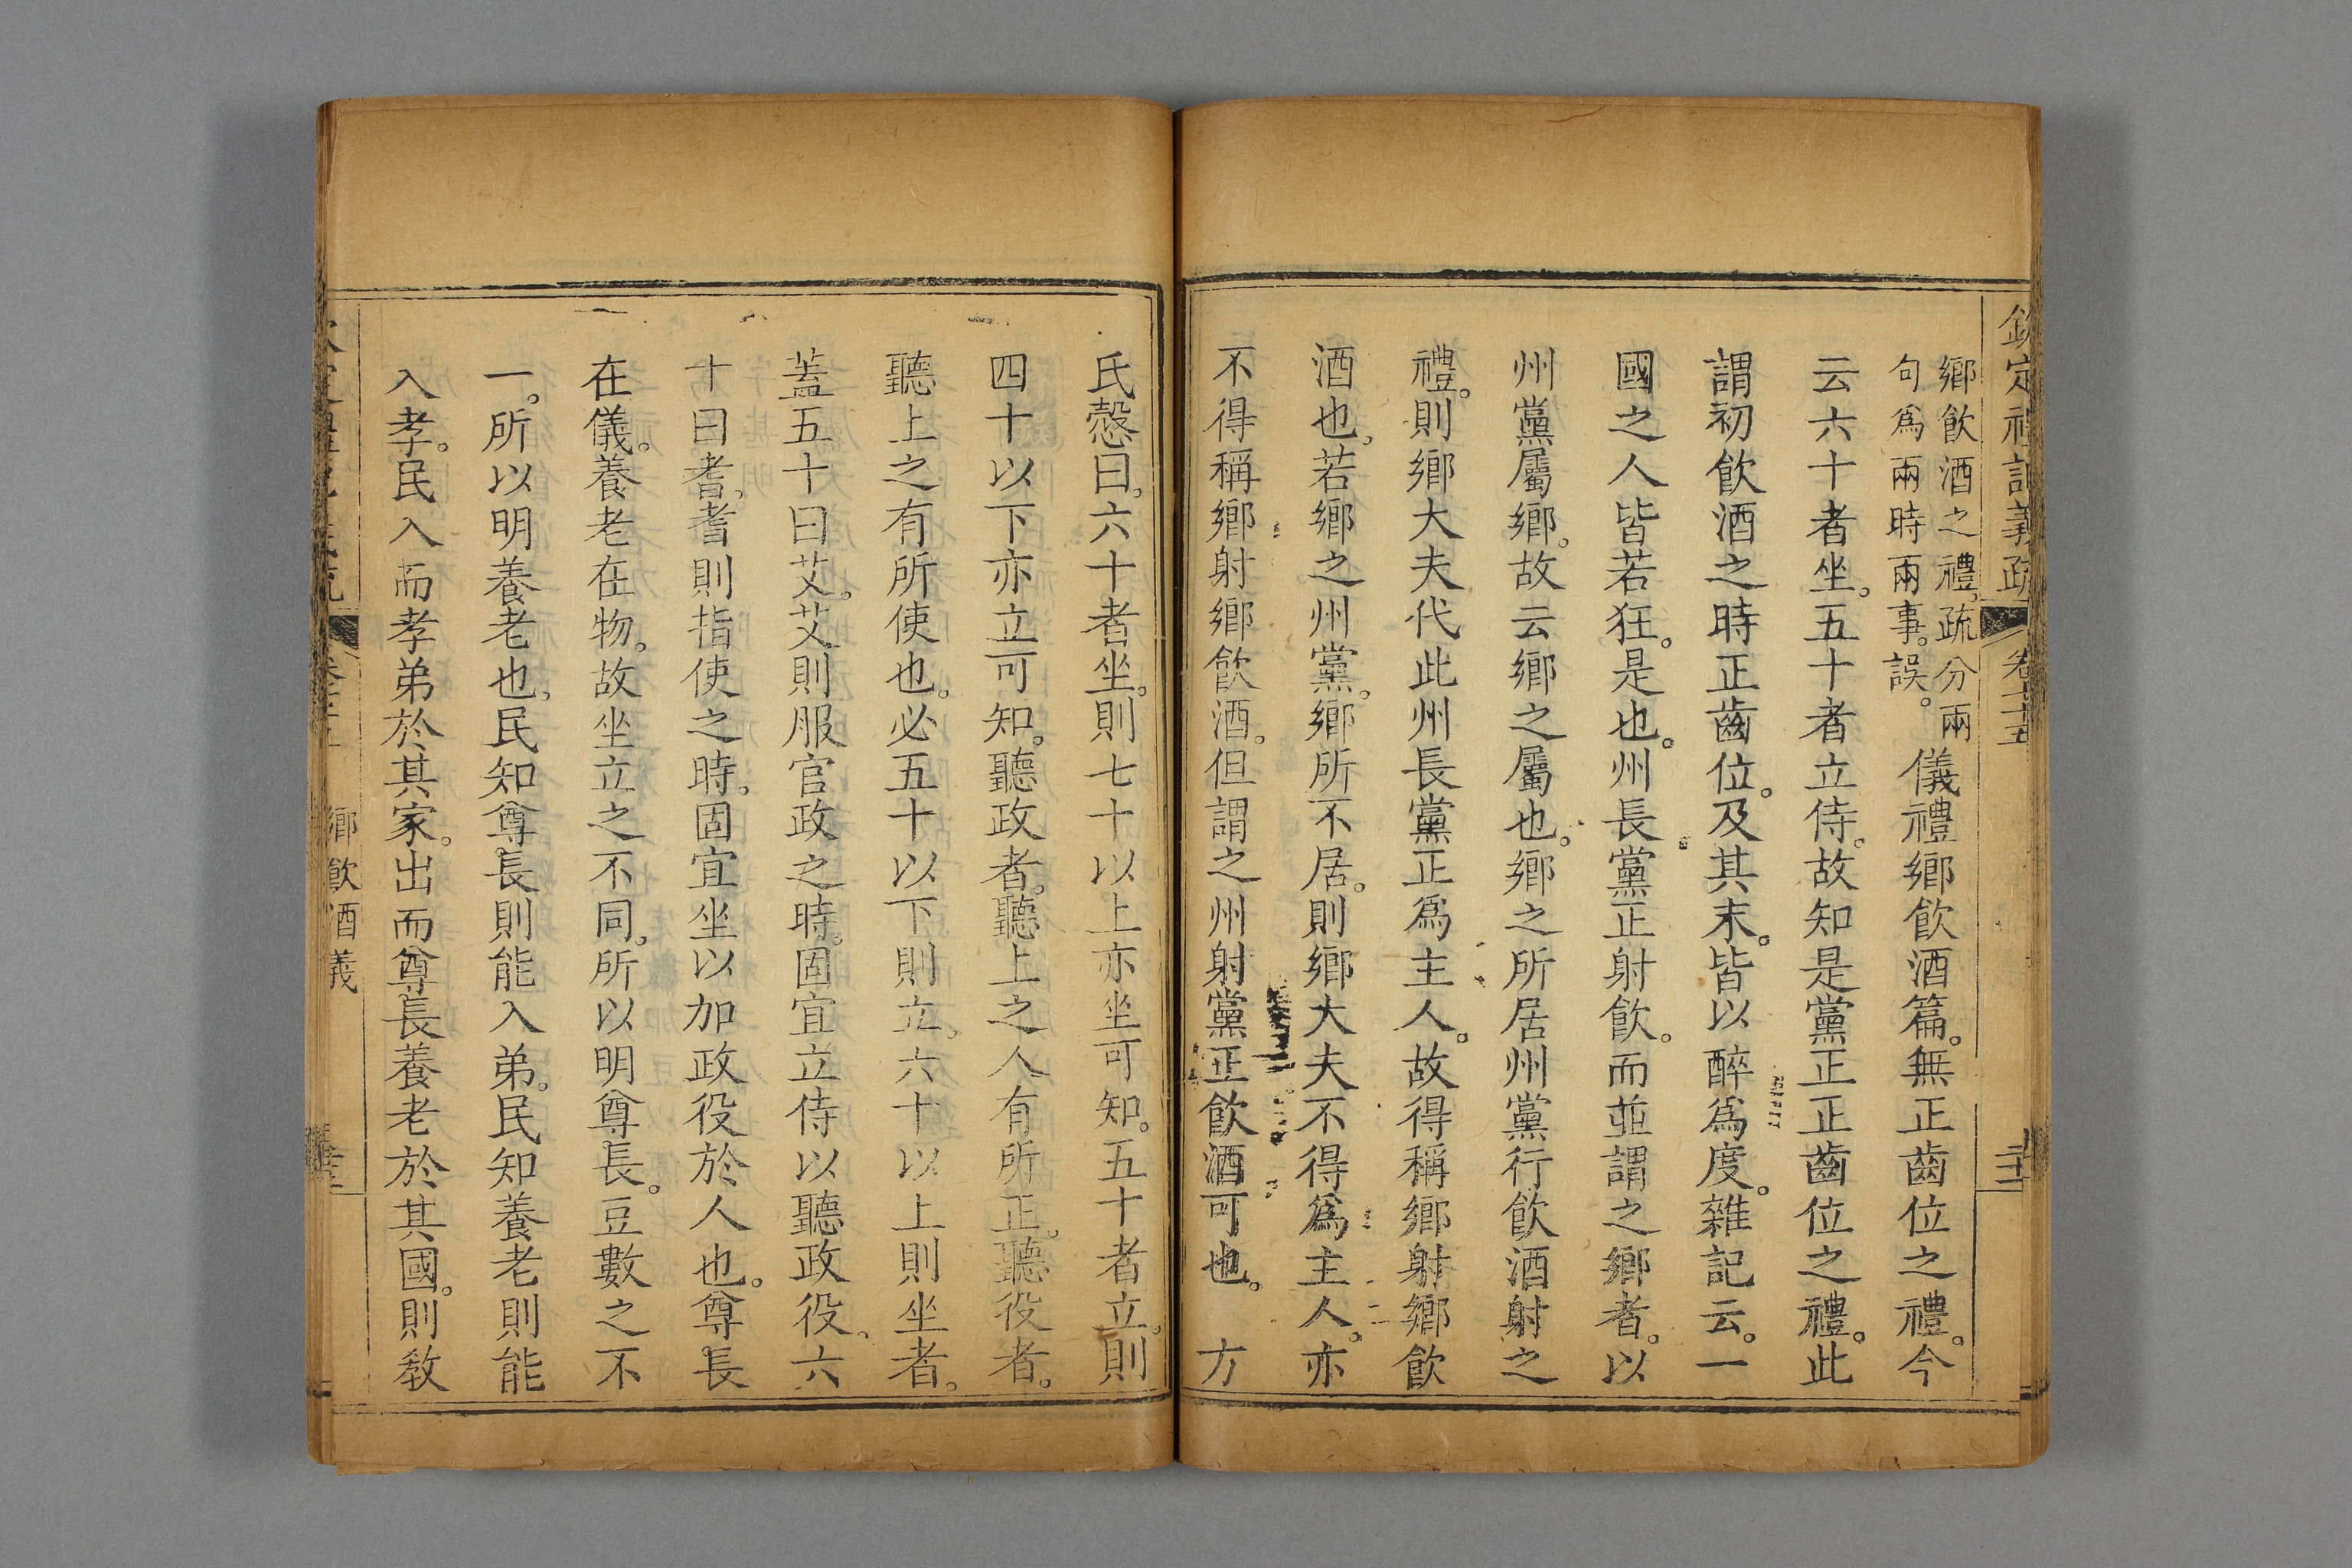 鄉飲酒之禮。疏分兩
句爲兩時兩事。誤。
儀禮鄉飲酒篇。無正齒位之禮。今
云六十者坐。五十者立侍。故知是黨正正齒位之禮。此
謂初飲酒之時正齒位。及其末。皆以醉爲度。雜記云。一
國之人皆若狂。是也。州長黨正射飲。而並謂之鄉者。以
州黨屬鄉。故云鄉之屬也。鄉之所居州黨行飲酒射之
禮。則鄉大夫代此州長黨正爲主人。故得稱鄉射鄉飲
酒也。若鄉之州黨。鄉所不居。則鄉大夫不得爲主人。亦
不得稱鄉射鄉飲酒。但謂之州射黨正飲酒可也。　方
氏慤曰。六十者坐。則七十以上亦坐可知。五十者立。則
四十以下亦立可知。聽政者。聽上之人有所正。聽役者。
聽上之有所使也。必五十以下則立。六十以上則坐者。
蓋五十曰艾。艾則服官政之時。固宜立侍以聽政役。六
十曰耆。耆則指使之時。固宜坐以加政役於人也。尊長
在儀。養老在物。故坐立之不同。所以明尊長。豆數之不
一。所以明養老也。民知尊長則能入弟。民知養老則能
入孝。民入而孝弟於其家。出而尊長養老於其國。則敎
鄉飲酒義